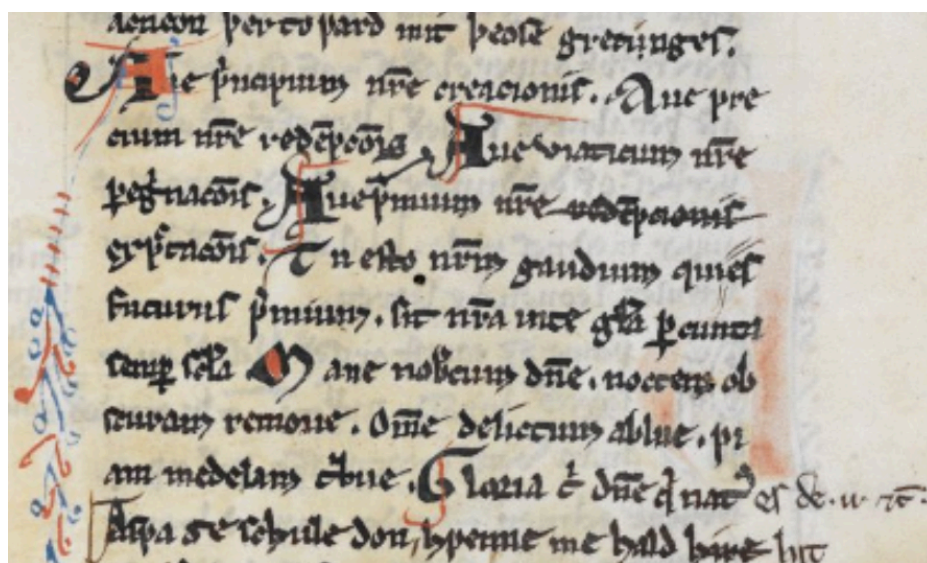 acneon þer toƿard mit þeose gretunges.
Aue p̃ncipium nr̃e creacionis. Aue pre
cium nr̃e redẽpcõis Aue uiaticum nr̃e
peg̃nacõis. Aue p̃mium nr̃e redẽpcionis
exp̃ctacõis. Tu esto nr̃m gaudium qui es
futurus p̃mium. sit nr̃a in te gl̃a p cuncta
semp scl̃a Mane nob̃cum dñe. noctem ob
scuram remoue. Om̃e delictum ablue. pi
am medelam t̃bue. Gloria t̃ dñe q̃ nat᾽ es de .u. ⁊c̃.
Asƿa ȝe schule don, hƿenne me hald hire hit